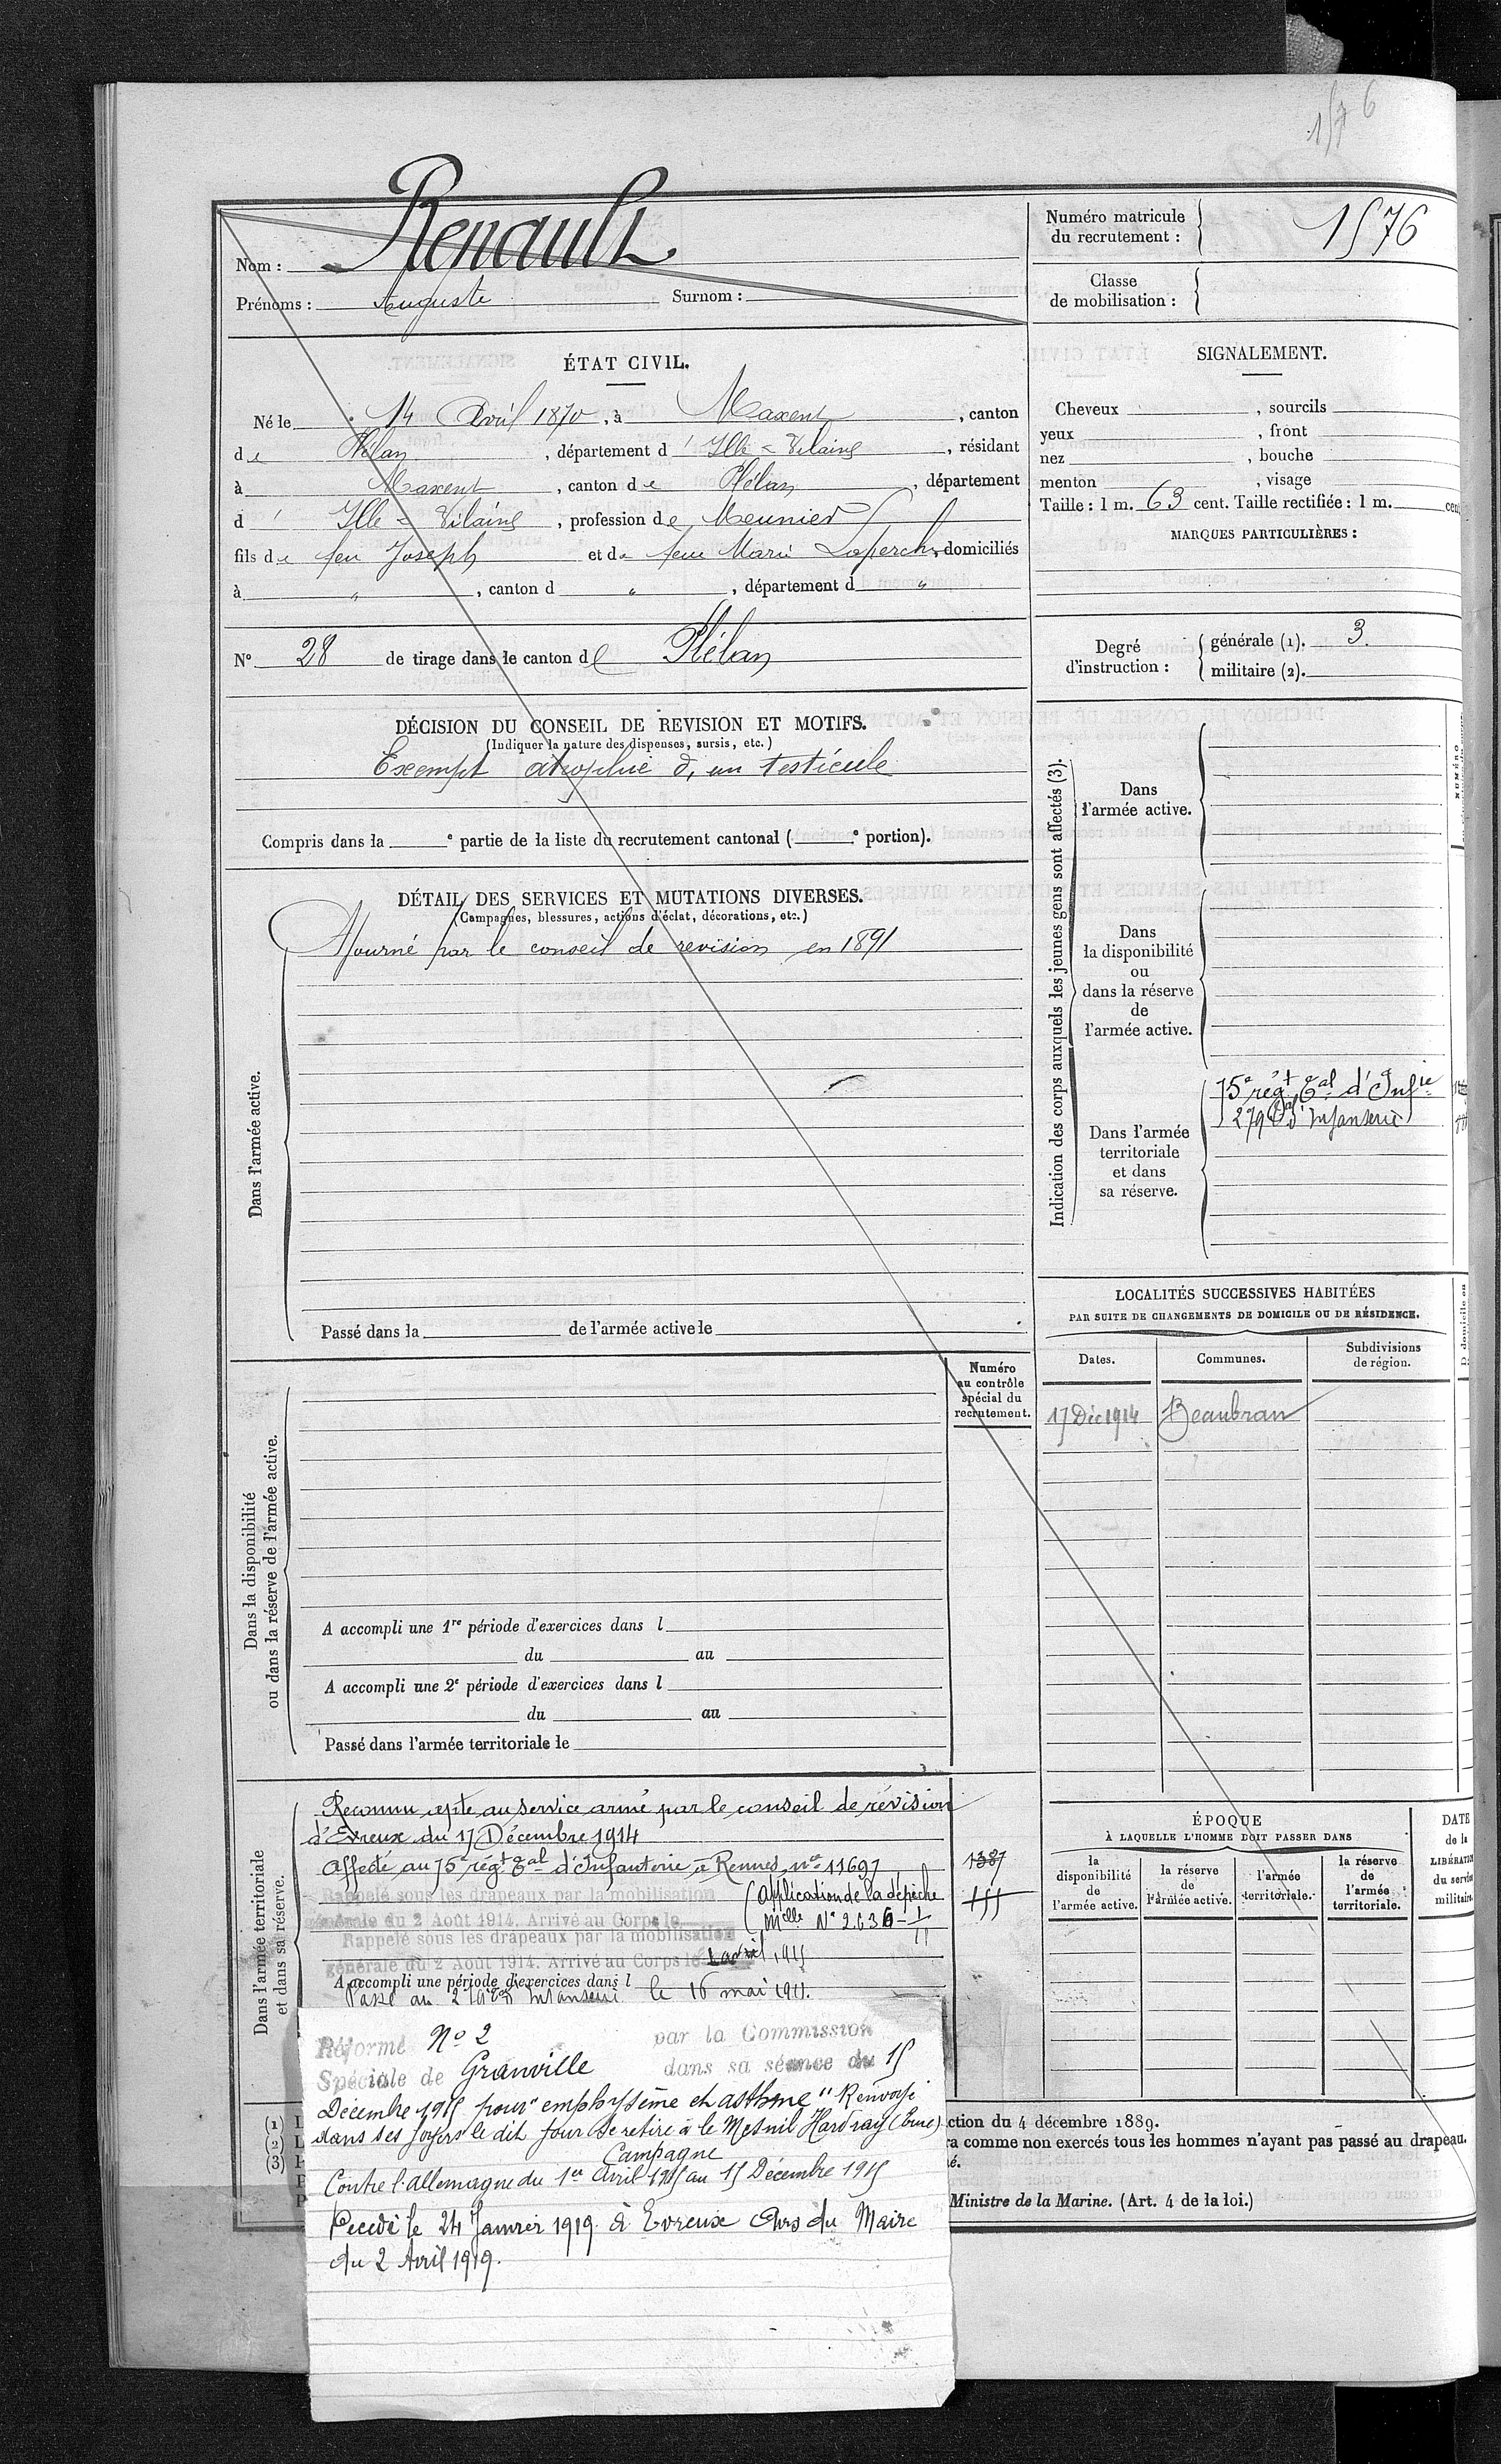 1576
Nom : Renault
Prénoms : Auguste Surnom :
Numéro matricule
du recrutement : 1576
Classe
de mobilisation :
ÉTAT CIVIL.
Né le 14 Avril 1870, à Maxent, canton
de Plélan, département d' Ille = Vilaine, résidant
à Maxent, canton de Plélan, département
d' Ille = Vilaine, profession de Meunier
fils de feu Joseph et de feue Marie Laperche, domiciliés
à " , canton d " , département d "
SIGNALEMENT.
Cheveux , sourcils
yeux , front
nez , bouche
menton , visage
Taille : 1 m. 63 cent. Taille rectifiée : 1 m. cent
MARQUES PARTICULIÈRES :
N° 28 de tirage dans le canton de Plélan
Degré
d'instruction :
générale (1). 3.
militaire (2).
DÉCISION DU CONSEIL DE REVISION ET MOTIFS.
(Indiquer la nature des dispenses, sursis, etc.)
Exempt atrophie d, un testicule
Compris dans la e partie de la liste du recrutement cantonal ( e portion).
DÉTAIL DES SERVICES ET MUTATIONS DIVERSES.
(Campagnes, blessures, actions d'éclat, décorations, etc.)
Dans l'armée active.
Ajourné par le conseil de revision en 1891
Passé dans la de l'armée active le
Indication des corps auxquels les jeunes gens sont affectés (3).
Dans
l'armée active.
Dans
la disponibilité
ou
dans la réserve
de
l'armée active.
Dans l'armée
territoriale
et dans
sa réserve.
75e régt Tal d'Infie
279 d'Infanterie
NUMÉRO
LOCALITÉS SUCCESSIVES HABITÉES
PAR SUITE DE CHANGEMENTS DE DOMICILE OU DE RÉSIDENCE.
Dates. Communes. Subdivisions
de région.
17 Déc 1914 Beaubray
Numéro
au contrôle
spécial du
recrutement.
Dans la disponibilité
ou dans la réserve de l'armée active.
A accompli une 1re période d'exercices dans l
du au
A accompli une 2e période d'exercices dans l
du au
Passé dans l'armée territoriale le
Dans l'armée territoriale
et dans sa réserve.
Reconnu apte au service armé par le conseil de révision
d'Evreux du 17 Décembre 1914
Affecté au 75e régt Tal d'Infanterie à Rennes no 11697
1387
Rappelé sous les drapeaux par la mobilisation
générale du 2 Août 1914. Arrivé au Corps le
(Application de la dépêche
Mlle N° 2.636 - 1/11
155
Rappelé sous les drapeaux par la mobilisation
générale du 2 Août 1914. Arrivé au Corps le 1 avril 1915
A accompli une période d'exercices dans l
Passé au 279 Infanterie le 16 mai 1915.
Réformé No 2 par la Commission
Spéciale de Granville dans sa séance du 15
Décembre 1915 pour "emphysème et asthme" Renvoyé
dans ses foyers le dit jour Se retire à le Mesnil Hardray (Eure)
Campagne
Contre l'allemagne du 1er Avril 1915 au 15 Décembre 1915
Décédé le 24 Janvier 1919 à Evreux Avis du Maire
du 2 Avril 1919.
ÉPOQUE
À LAQUELLE L'HOMME DOIT PASSER DANS
la
disponibilité
de
l'armée active.
la réserve
de
l'armée active.
l'armée
territoriale.
la réserve
de
l'armée
territoriale.
DATE
de la
LIBÉRATION
du service
militaire.
(1)
(2)
(3)
ction du 4 décembre 1889.
ra comme non exercés tous les hommes n'ayant pas passé au drapeau.
é.
Ministre de la Marine. (Art. 4 de la loi.)